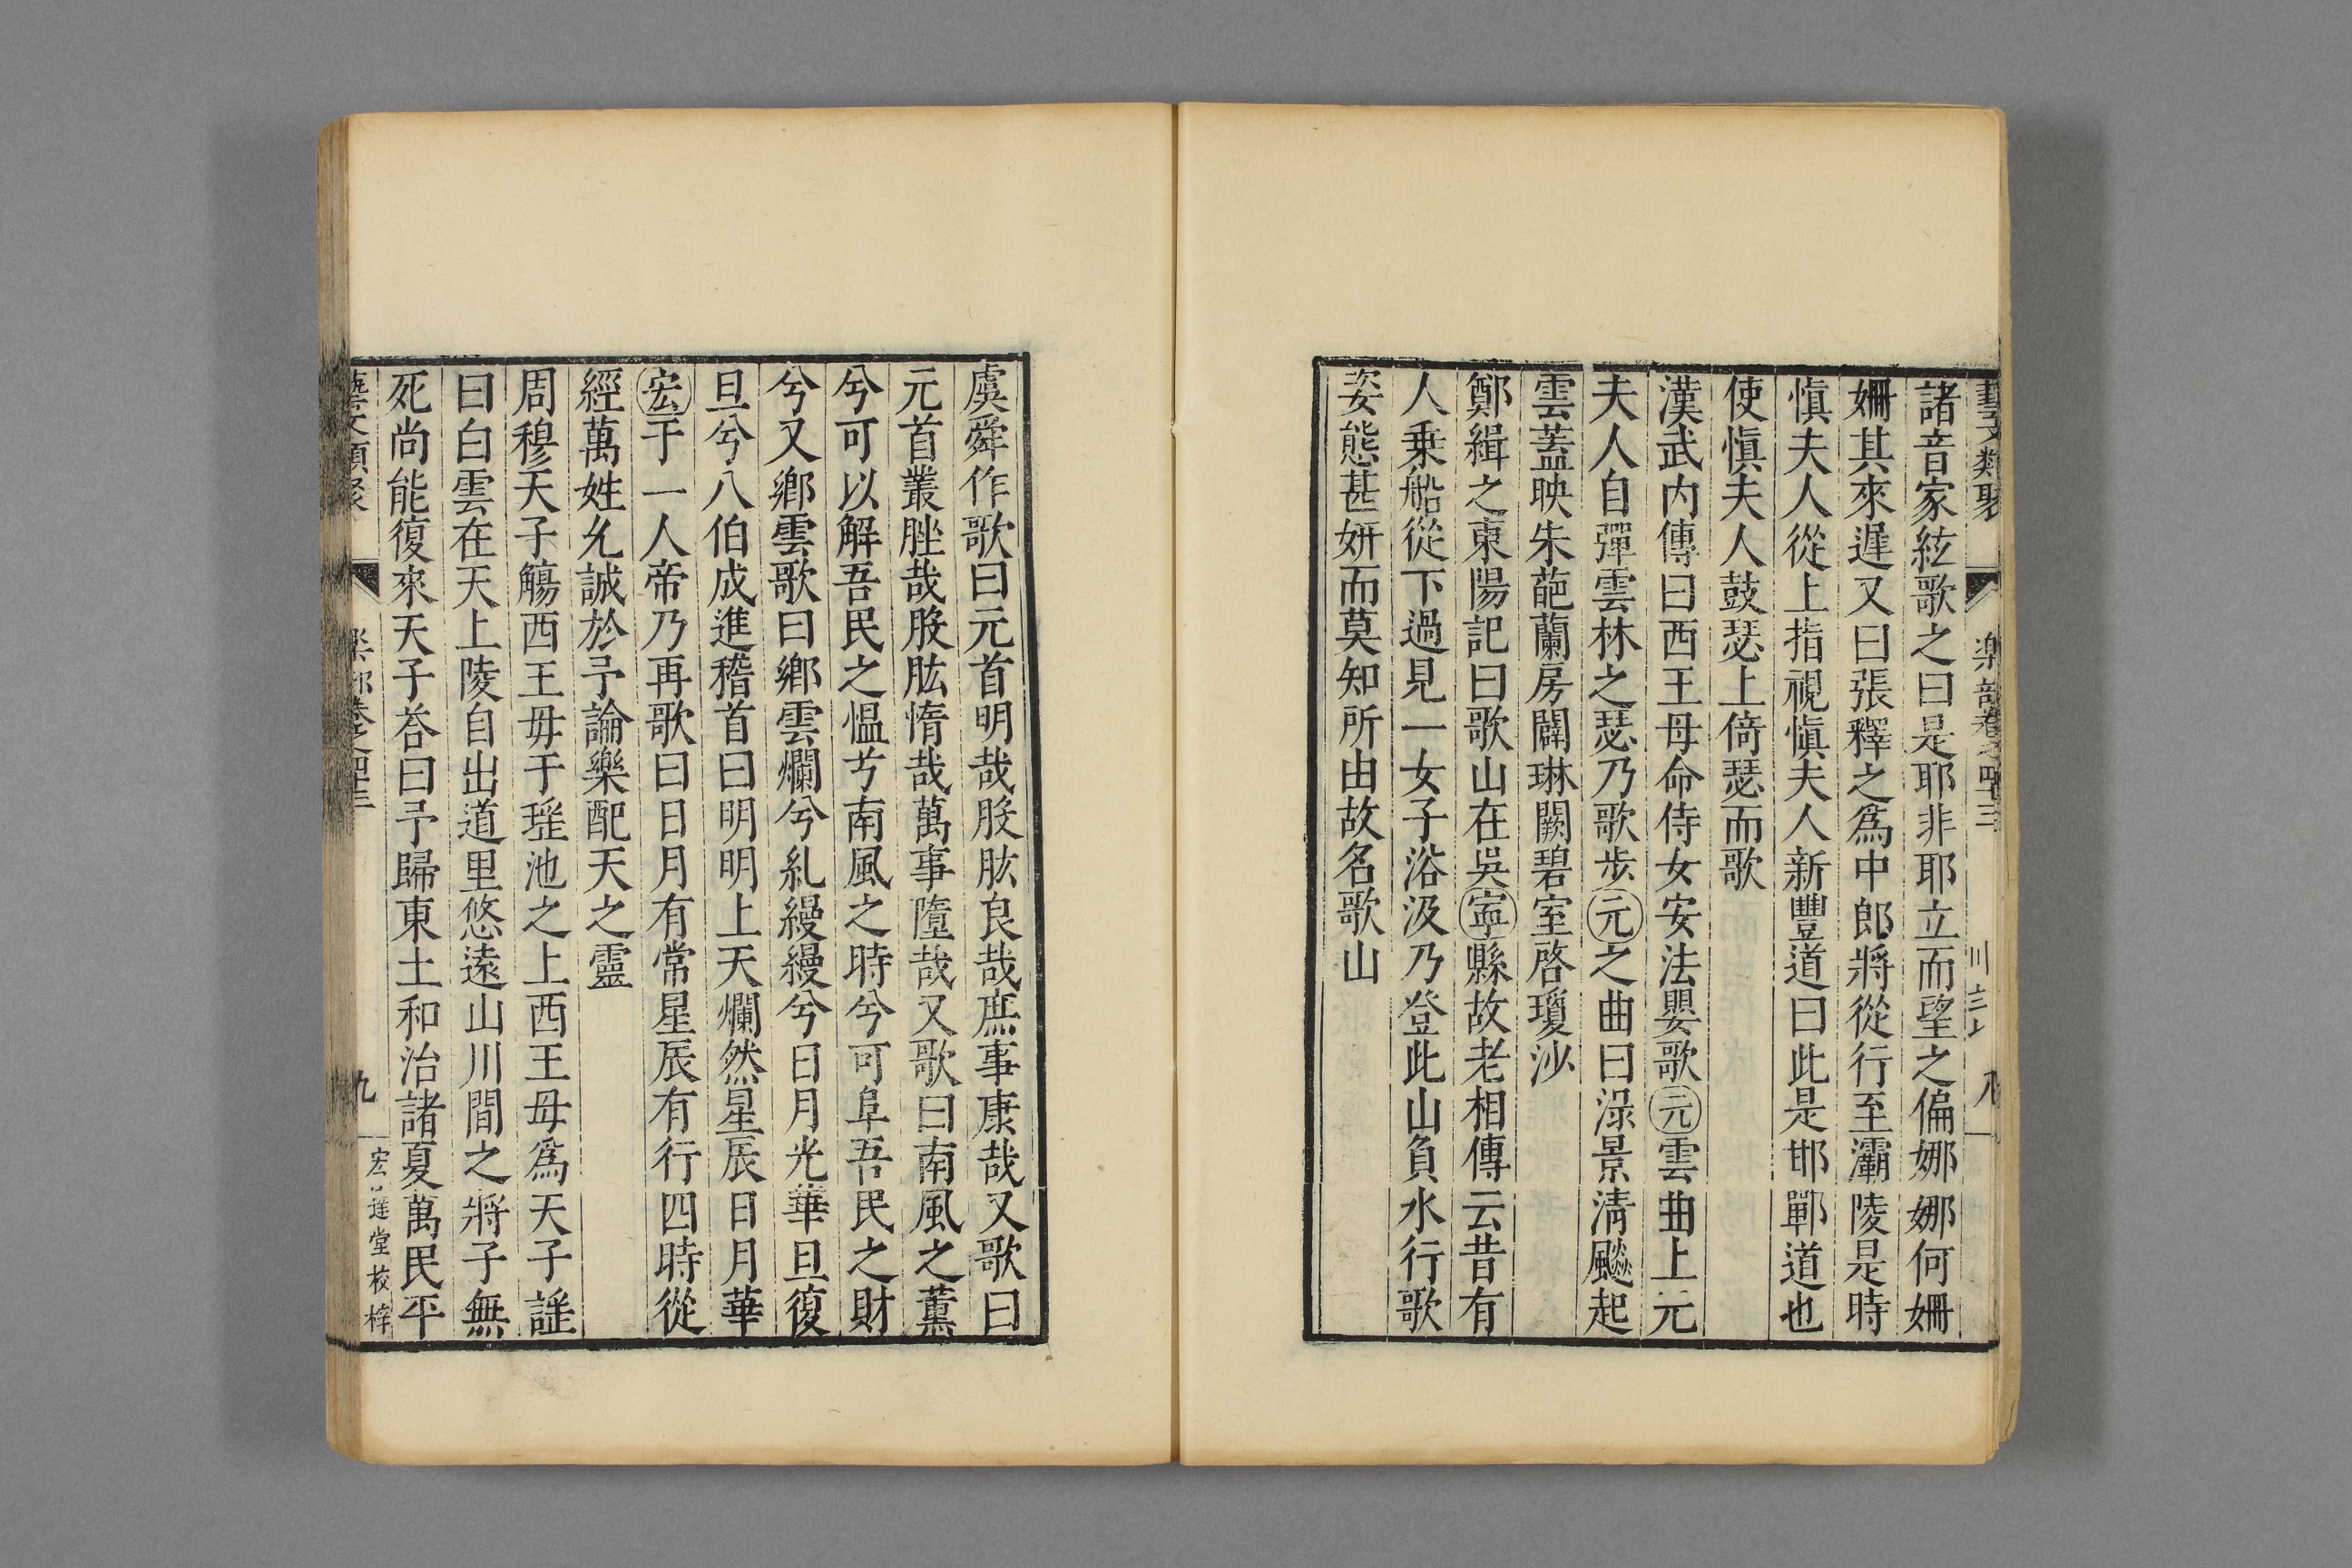 藝文類聚 樂部卷之四十三 八
諸音家絃歌之曰是耶非耶立而望之偏娜娜何姍
姍其來遲又曰張釋之爲中郎將從行至灞陵是時
愼夫人從上指視愼夫人新豐道曰此是邯鄲道也
使愼夫人鼓瑟上倚瑟而歌
漢武內傳曰西王母命侍女安法嬰歌元雲曲上元
夫人自彈雲林之瑟乃歌步元之曲曰淥景清飈起
雲蓋映朱葩蘭房闢琳闕碧室啓瓊沙
鄭緝之東陽記曰歌山在吳寧縣故老相傳云昔有
人乗船從下過見一女子浴汲乃登此山負水行歌
姿態甚妍而莫知所由故名歌山
虞舜作歌曰元首明哉股肱良哉庶事康哉又歌曰
元首叢脞哉股肱惰哉萬事墮哉又歌曰南風之薰
兮可以解吾民之愠兮南風之時兮可阜吾民之財
兮又鄉雲歌曰鄉雲爛兮糺縵縵兮日月光華旦復
旦兮八伯成進稽首曰明明上天爛然星辰日月華
宏于一人帝乃再歌曰日月有常星辰有行四時從
經萬姓允誠於予論樂配天之靈
周穆天子觴西王母于瑤池之上西王母爲天子謠
曰白雲在天上陵自出道里悠遠山川間之將子無
死尚能復來天子荅曰予歸東土和治諸夏萬民平
藝文類聚 樂部卷之四十三 九 宏達堂校梓